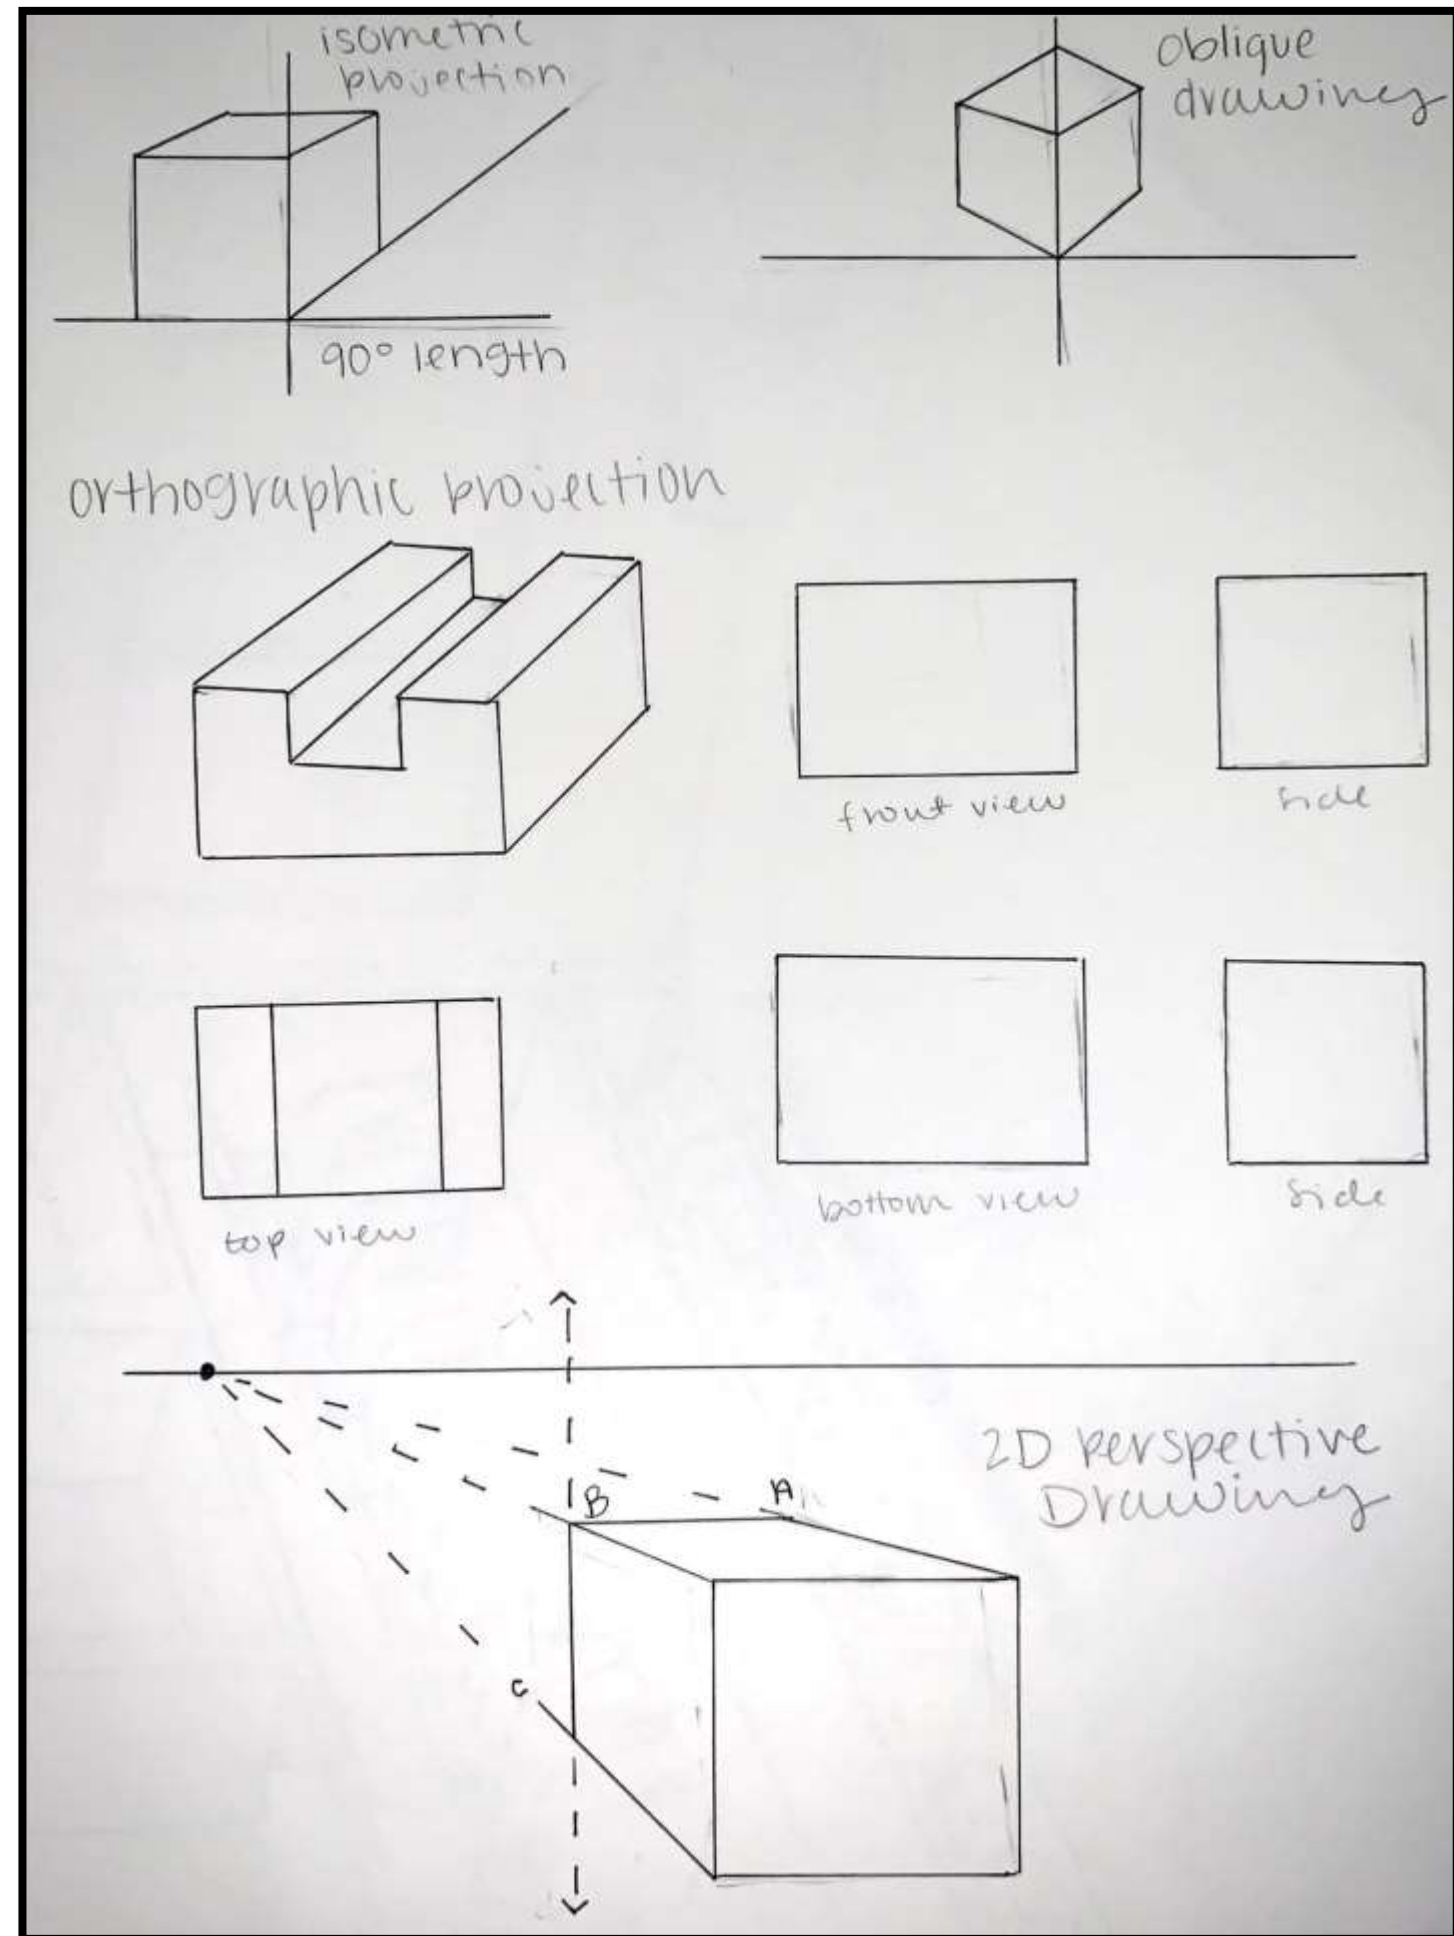 isometric
projection
oblique
drawing
90° length
orthographic projection
front view
side
top view
bottom view
side
2D perspective
Drawing
B
A
C